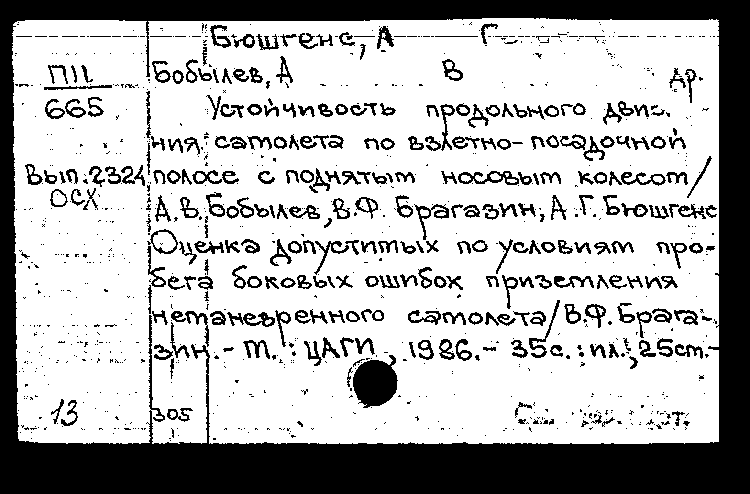 Бюшгенс, А Г
П11 Бобылев, А В др.
665 Устойчивость продольного движе.
ния самолета по взлетно-посадочной
Вып.2324 полосе с поднятым носовым колесом/
ОСХ А.В.Бобылев, В.Ф. Брагазин, А.Г.Бюшгенс
Оценка допустимых по условиям про-
бега боковых ошибок приземления
неманевренного самолета/В.Ф.Брага-
зин.- М.: ЦАГИ, 1986.- 35с.: ил.; 25см.-
13 305